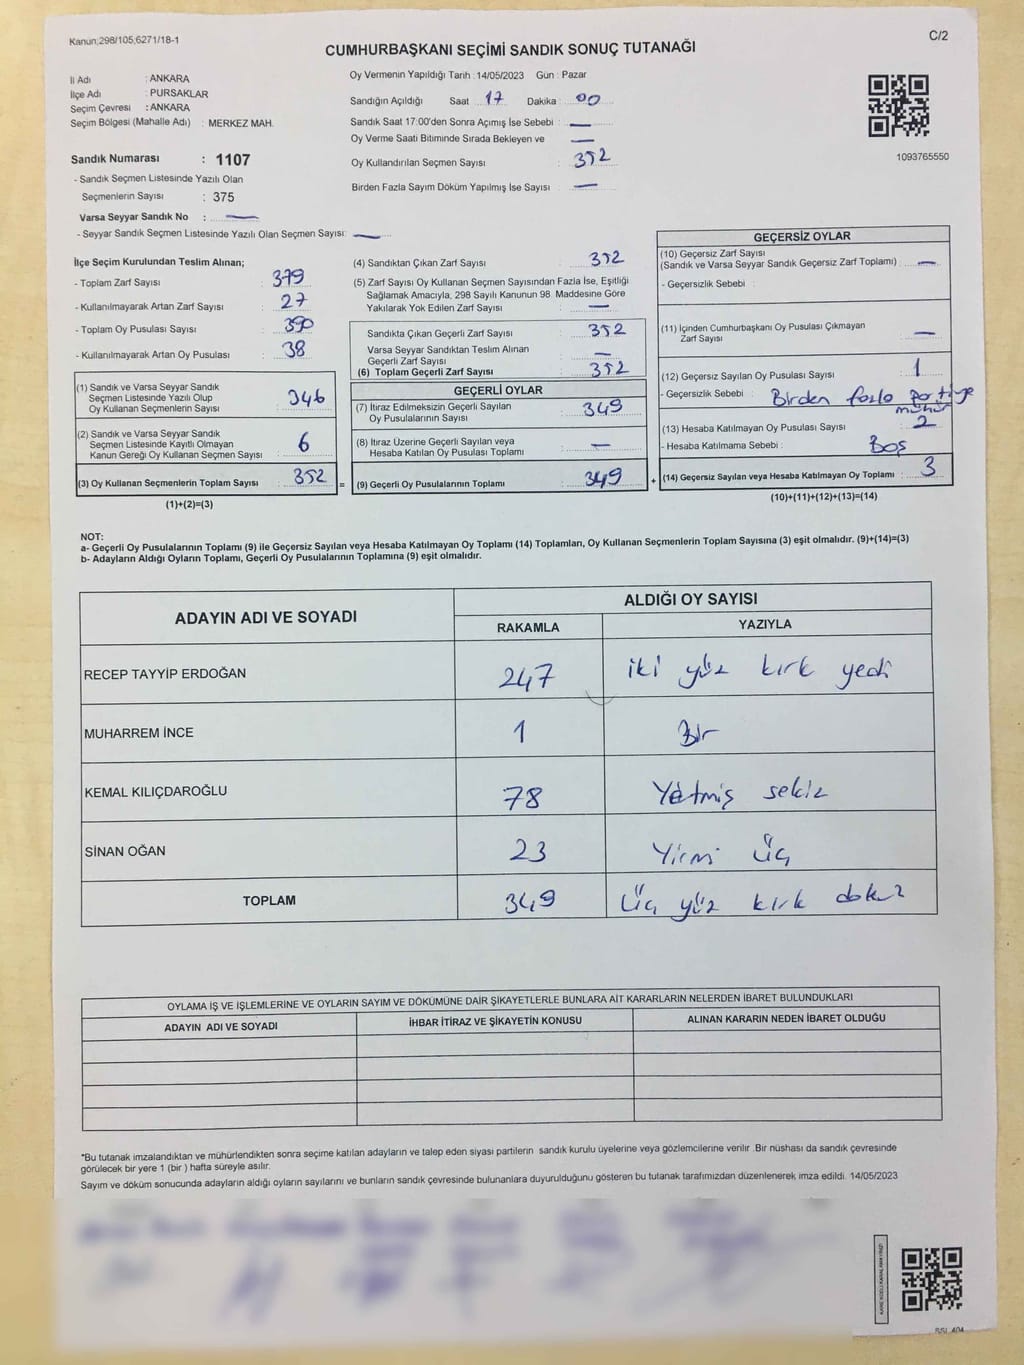 Kanun;298/105,6271/18-1
C/2
CUMHURBAŞKANI SEÇİMİ SANDIK SONUÇ TUTANAĞI
İl Adı : ANKARA
İlçe Adı : PURSAKLAR
Seçim Çevresi : ANKARA
Seçim Bölgesi (Mahalle Adı) : MERKEZ MAH.
Oy Vermenin Yapıldığı Tarih : 14/05/2023 Gün : Pazar
Sandığın Açıldığı Saat 17 Dakika : 00
Sandık Saat 17:00'den Sonra Açımış İse Sebebi : —
Oy Verme Saati Bitiminde Sırada Bekleyen ve —
Oy Kullandırılan Seçmen Sayısı : 352
Birden Fazla Sayım Döküm Yapılmış İse Sayısı : —
1093765550
Sandık Numarası : 1107
- Sandık Seçmen Listesinde Yazılı Olan
Seçmenlerin Sayısı : 375
Varsa Seyyar Sandık No : —
- Seyyar Sandık Seçmen Listesinde Yazılı Olan Seçmen Sayısı: —
İlçe Seçim Kurulundan Teslim Alınan;
- Toplam Zarf Sayısı : 379
- Kullanılmayarak Artan Zarf Sayısı : 27
- Toplam Oy Pusulası Sayısı : 390
- Kullanılmayarak Artan Oy Pusulası : 38
(1) Sandık ve Varsa Seyyar Sandık
Seçmen Listesinde Yazılı Olup
Oy Kullanan Seçmenlerin Sayısı : 346
(2) Sandık ve Varsa Seyyar Sandık
Seçmen Listesinde Kayıtlı Olmayan
Kanun Gereği Oy Kullanan Seçmen Sayısı : 6
(3) Oy Kullanan Seçmenlerin Toplam Sayısı : 352 =
(1)+(2)=(3)
(4) Sandıktan Çıkan Zarf Sayısı : 352
(5) Zarf Sayısı Oy Kullanan Seçmen Sayısından Fazla İse, Eşitliği
Sağlamak Amacıyla, 298 Sayılı Kanunun 98. Maddesine Göre
Yakılarak Yok Edilen Zarf Sayısı : —
Sandıkta Çıkan Geçerli Zarf Sayısı : 352
Varsa Seyyar Sandıktan Teslim Alınan
Geçerli Zarf Sayısı : —
(6) Toplam Geçerli Zarf Sayısı : 352
GEÇERLİ OYLAR
(7) İtiraz Edilmeksizin Geçerli Sayılan
Oy Pusulalarının Sayısı : 349
(8) İtiraz Üzerine Geçerli Sayılan veya
Hesaba Katılan Oy Pusulası Toplamı : —
(9) Geçerli Oy Pusulalarının Toplamı : 349 +
GEÇERSİZ OYLAR
(10) Geçersiz Zarf Sayısı
(Sandık ve Varsa Seyyar Sandık Geçersiz Zarf Toplamı) : —
- Geçersizlik Sebebi :
(11) İçinden Cumhurbaşkanı Oy Pusulası Çıkmayan
Zarf Sayısı : —
(12) Geçersiz Sayılan Oy Pusulası Sayısı : 1
- Geçersizlik Sebebi : Birden fazla partiye
mühür
(13) Hesaba Katılmayan Oy Pusulası Sayısı : 2
- Hesaba Katılmama Sebebi : Boş
(14) Geçersiz Sayılan veya Hesaba Katılmayan Oy Toplamı : 3
(10)+(11)+(12)+(13)=(14)
NOT:
a- Geçerli Oy Pusulalarının Toplamı (9) ile Geçersiz Sayılan veya Hesaba Katılmayan Oy Toplamı (14) Toplamları, Oy Kullanan Seçmenlerin Toplam Sayısına (3) eşit olmalıdır. (9)+(14)=(3)
b- Adayların Aldığı Oyların Toplamı, Geçerli Oy Pusulalarının Toplamına (9) eşit olmalıdır.
ADAYIN ADI VE SOYADI
ALDIĞI OY SAYISI
RAKAMLA YAZIYLA
RECEP TAYYİP ERDOĞAN 247 iki yüz kırk yedi
MUHARREM İNCE 1 Bir
KEMAL KILIÇDAROĞLU 78 Yetmiş sekiz
SİNAN OĞAN 23 Yirmi Üç
TOPLAM 349 Üç yüz kırk dokuz
OYLAMA İŞ VE İŞLEMLERİNE VE OYLARIN SAYIM VE DÖKÜMÜNE DAİR ŞİKAYETLERLE BUNLARA AİT KARARLARIN NELERDEN İBARET BULUNDUKLARI
ADAYIN ADI VE SOYADI İHBAR İTİRAZ VE ŞİKAYETİN KONUSU ALINAN KARARIN NEDEN İBARET OLDUĞU
*Bu tutanak imzalandıktan ve mühürlendikten sonra seçime katılan adayların ve talep eden siyasi partilerin sandık kurulu üyelerine veya gözlemcilerine verilir. Bir nüshası da sandık çevresinde
görülecek bir yere 1 (bir ) hafta süreyle asılır.
Sayım ve döküm sonucunda adayların aldığı oyların sayılarını ve bunların sandık çevresinde bulunanlara duyurulduğunu gösteren bu tutanak tarafımızdan düzenlenerek imza edildi. 14/05/2023